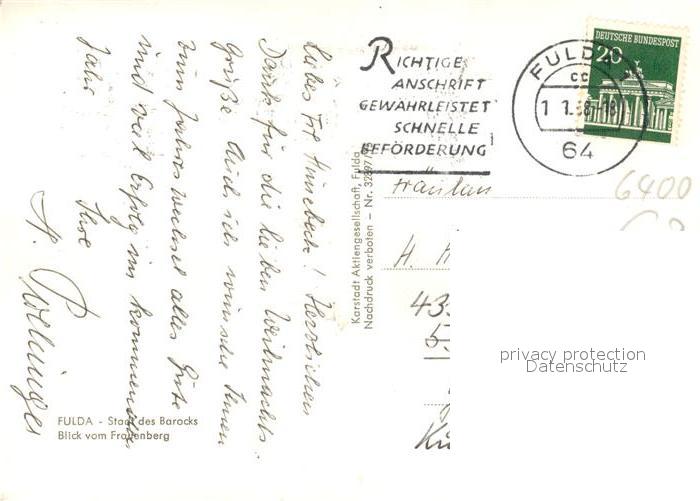 Liebes Frl. Hinebuch! Herzlichen
Dank für die lieben Weihnachts-
grüße. Auch ich wünsche Ihnen
zum Jahreswechsel alles Gute
und viel Erfolg im kommenden
Jahr
Ihre
H. Pollinger
FULDA - Stadt des Barocks
Blick vom Frauenberg
Karstadt Aktiengesellschaft, Fulda
Nachdruck verboten - Nr.
RICHTIGE
ANSCHRIFT
GEWÄHRLEISTET
SCHNELLE
BEFÖRDERUNG
FULDA
cc
64
DEUTSCHE BUNDESPOST
20
6400
Fräulein
H. H
43
privacy protection
Datenschutz